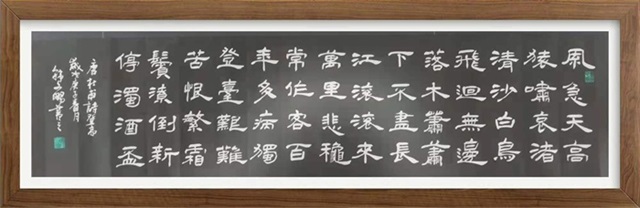 風急天高
猿嘯哀渚
清沙白鳥
飛迴無邊
落木蕭蕭
下不盡長
江滾滾來
萬里悲穐
常作客百
年多病獨
登臺艱難
苦恨繁霜
鬢潦倒新
停濁酒盃
唐杜甫詩登高
歲次庚子春月
書之